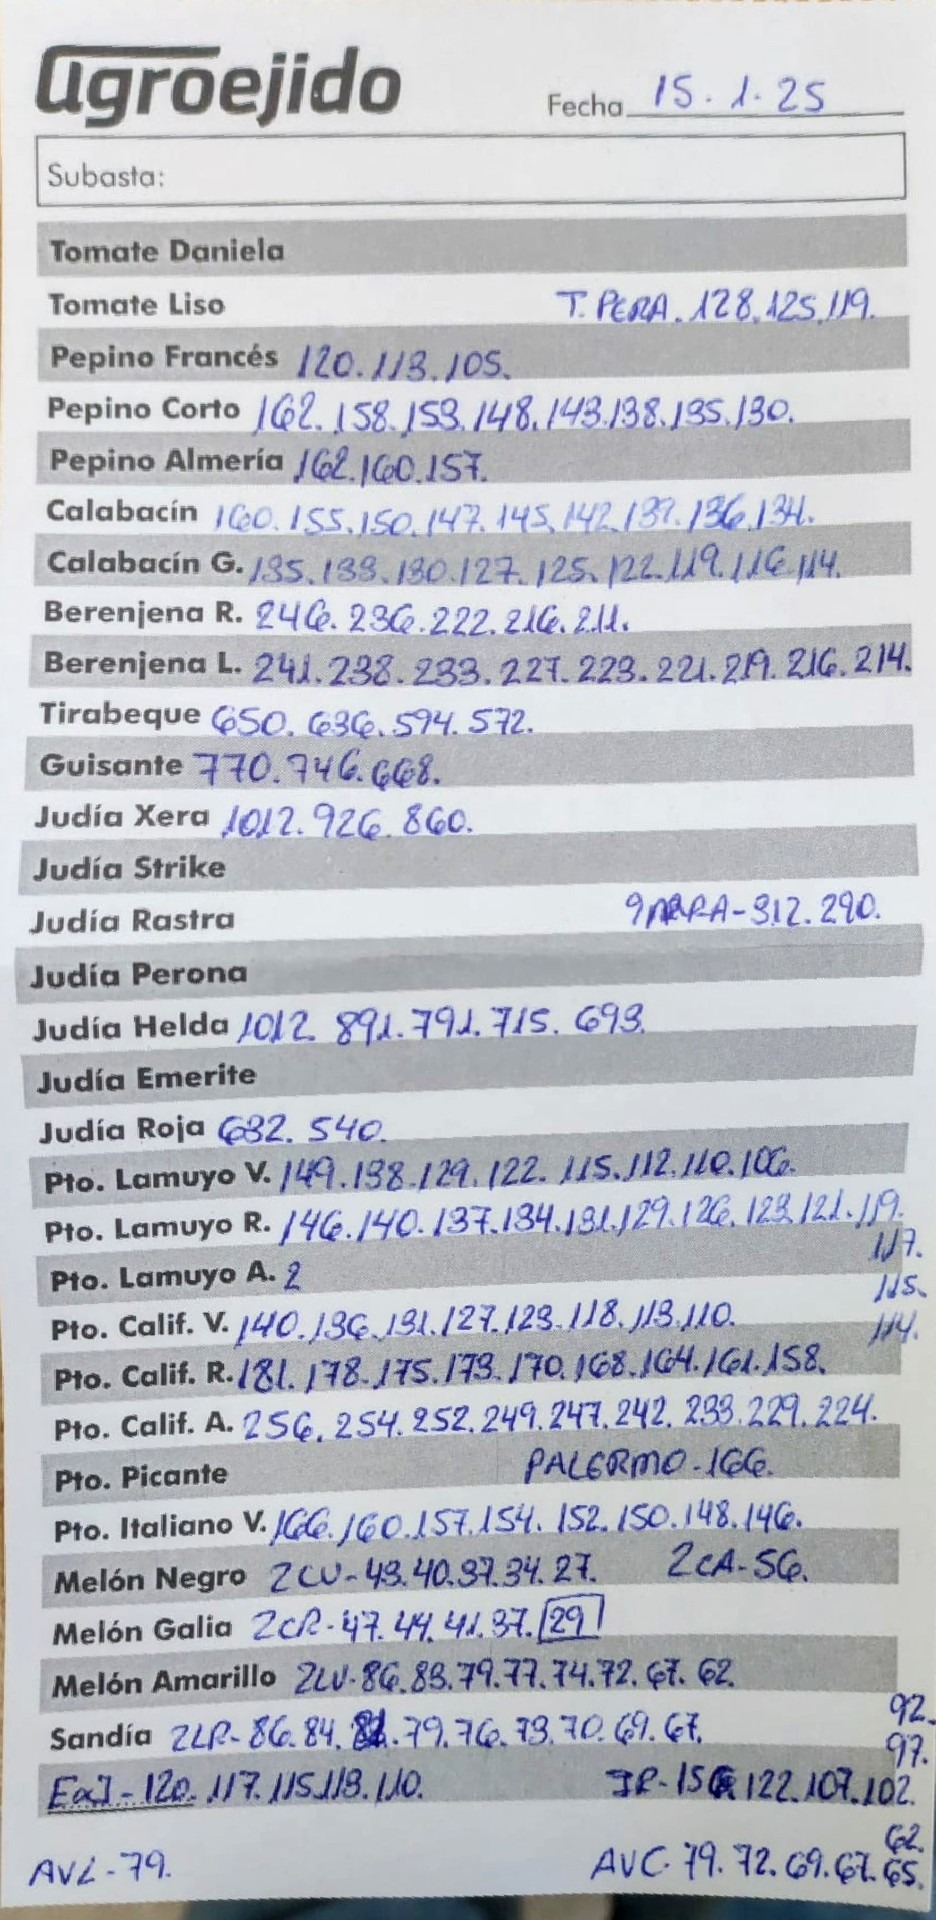 agroejido
Fecha 15.1.25
Subasta:
Tomate Daniela
Tomate Liso T. PERA. 128.125.119.
Pepino Francés 120.113.105.
Pepino Corto 162.158.153.148.143.138.135.130.
Pepino Almería 162.160.157.
Calabacín 160.155.150.147.145.142.139.136.134.
Calabacín G. 135.133.130.127.125.122.119.116.114.
Berenjena R. 246.236.222.216.211.
Berenjena L. 241.238.233.227.223.221.219.216.214.
Tirabeque 650.636.594.572.
Guisante 770.746.668.
Judía Xera 1012.926.860.
Judía Strike
Judía Rastra 9ARRA-312.290.
Judía Perona
Judía Helda 1012.891.791.715.693.
Judía Emerite
Judía Roja 632.540.
Pto. Lamuyo V. 149.138.129.122.115.112.110.106.
Pto. Lamuyo R. 146.140.137.134.131.129.126.123.121.119.
117.
Pto. Lamuyo A. 2
115.
Pto. Calif. V. 140.136.131.127.123.118.113.110.
114.
Pto. Calif. R. 181.178.175.173.170.168.164.161.158.
Pto. Calif. A. 256.254.252.249.247.242.233.229.224.
Pto. Picante PALERMO-166.
Pto. Italiano V. 166.160.157.154.152.150.148.146.
Melón Negro 2CV-43.40.37.34.27. 2CA-56.
Melón Galia 2CR-47.44.41.37.29
Melón Amarillo 2LV-86.83.79.77.74.72.67.62.
92.
Sandía 2LR-86.84.82.79.76.73.70.69.67.
97.
EaJ-120.117.115.113.110. JR-156.122.107.102.
62.
AVL-79. AVC-79.72.69.67.65.